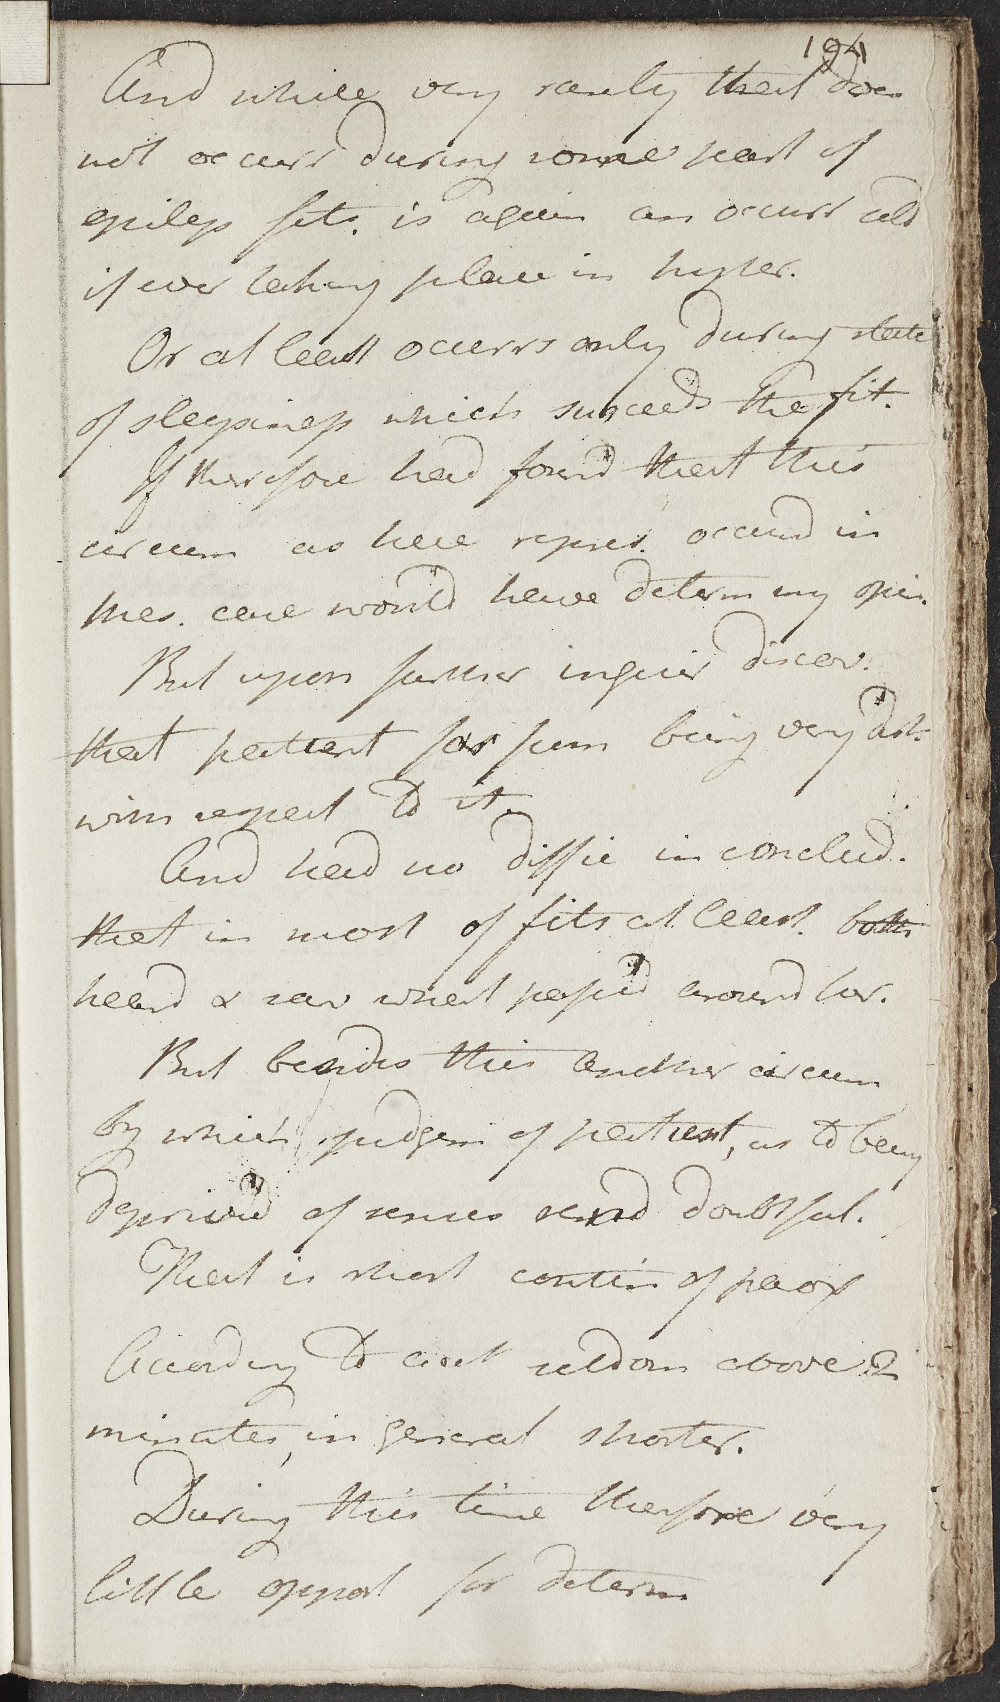 194
And while very rarely that does
not occurr during some part of
epileps fits. is again an occurr seld
if ever taking place in hyster.
Or at least occurrs only during state
of sleepiness which succeeds the fit.
If therefore had found that this
circum as here repres. occurrd in
this case would have determ my opin.
But upon further inquir discov.
that patient far from being very dist.
with respect to it.
And had no diffic in conclud.
that in most of fits at least. both
heard & saw what pass'd around her.
But besides this another circum
by which judgem of patient, as to being
depriv'd of senses rend doubtful.
That is short contin of parox
According to acct seldom above 2
minutes, in general shorter.
During this time therfore very
little opport for determ